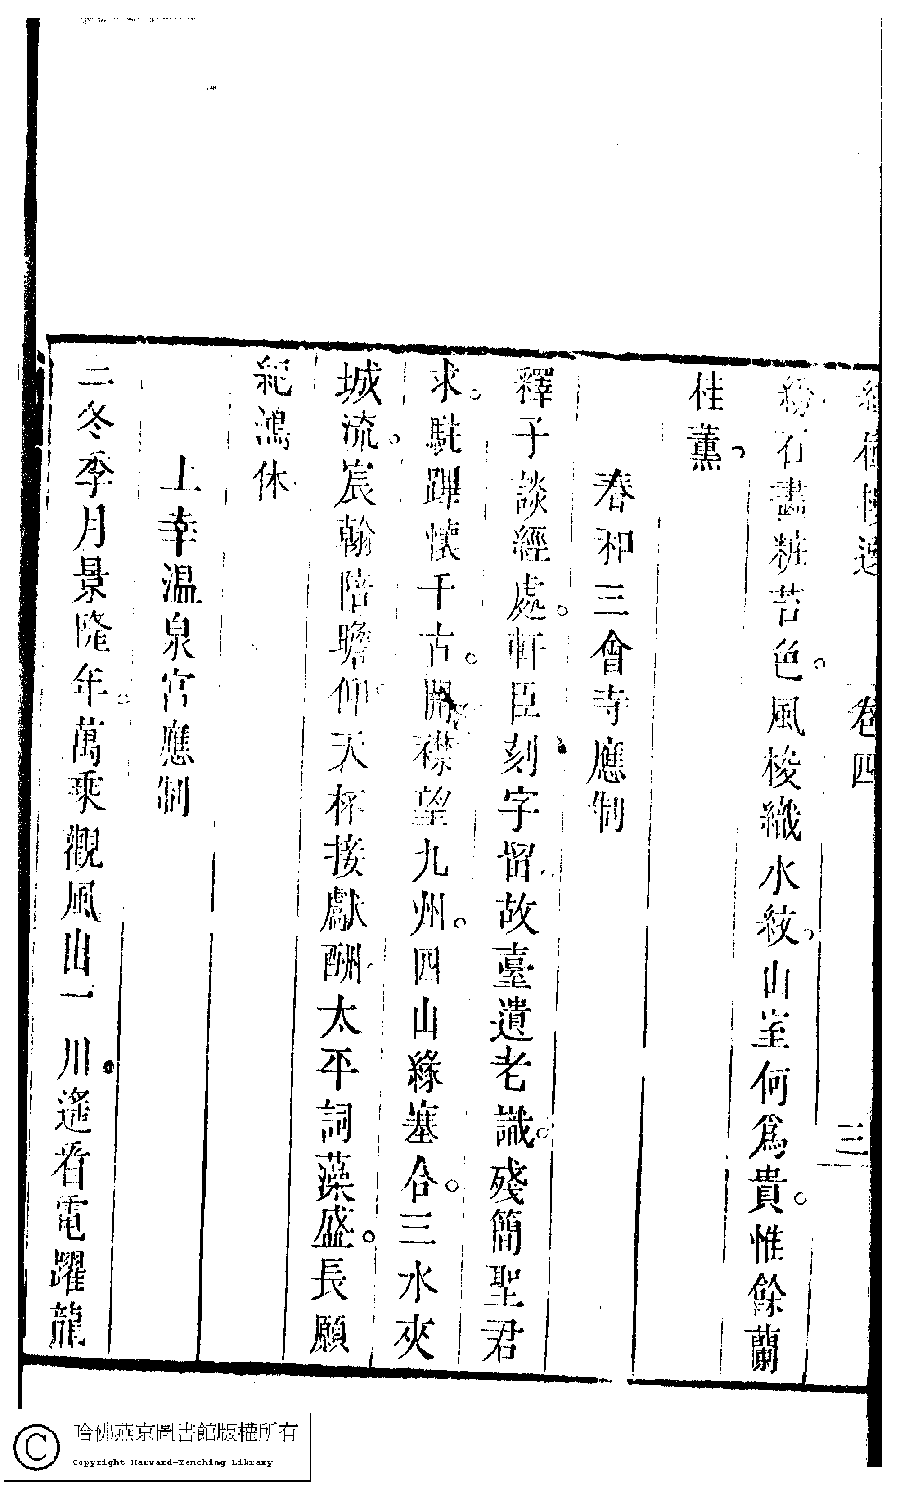 卷四
三
紛石畫粧苔色風梭織水紋山室何爲貴惟餘蘭
桂薰
奉和三會寺應制
釋子談經處軒臣刻字留故臺遺老識殘簡聖君
求駐蹕懷千古開襟望九州四山緣塞合三水夾
城流宸翰陪瞻仰天杯接獻酬太平詞藻盛長願
紀鴻休
上幸温泉宫應制
三冬季月景隆年萬乘觀風出一川遙看電躍龍
哈佛燕京圖書館版權所有
Copyright Harvard-Yenching Library